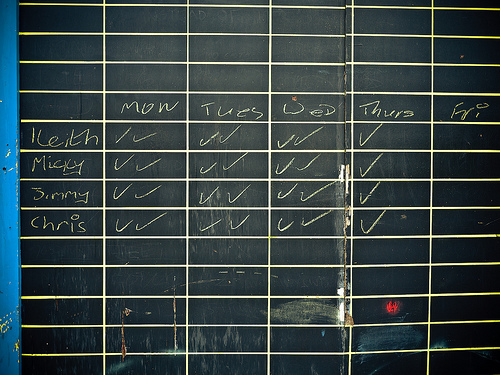 Mon Tues Wed Thurs Fri
Keith ✓✓ ✓✓ ✓✓ ✓
Micky ✓✓ ✓✓ ✓✓ ✓
Jimmy ✓✓ ✓✓ ✓✓ ✓
Chris ✓✓ ✓✓ ✓✓ ✓